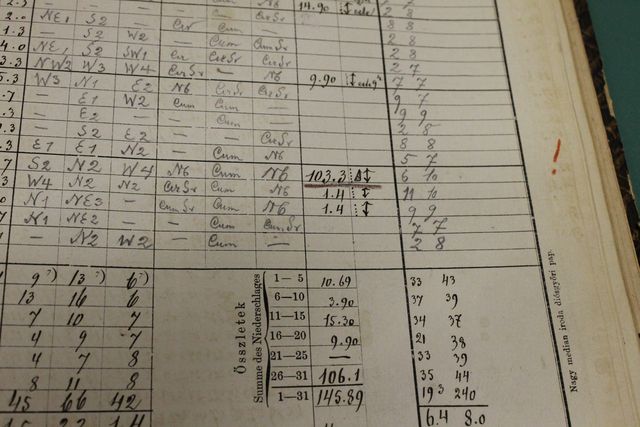 14.90
2.0 NE1 S2 — Cir Cum CirSr
1.3 — S2 W2 — Cum — 8 8
4.0 NE1 S2 SW1 Cir CirSr CirSr 2 8
3.3 NW2 W3 W4 CirSr — N6 2 7
5.3 W3 N1 E2 N6 CirSr CirSr 9.90 7 7
.7 — E1 W2 Cum Cum — 9 7
.3 — E2 — — Cum — 9 9
.3 — S2 E2 — — CirSr 2 8
.3 E1 E1 N2 — Cum N6 8 8
5 7
.7 S2 N2 W4 N6 Cum N6 103.3 6 10
3 W4 N2 N2 CirSr Cum N6 1.4 11 10
N1 NE3 — CumSr Cum N6 1.4 9 9
N1 NE2 — — Cum CumSr 7 7
— N2 W2 — Cum — 2 8
Összletek
Summe des Niederschlages
9 13 6 1—5 10.69 33 43
13 16 6 6—10 3.90 37 39
7 10 7 11—15 15.30 34 37
4 9 7 16—20 9.90 21 38
4 7 8 21—25 — 33 39
8 11 8 26—31 106.1 35 44
45 66 42 1—31 145.89 193 240
6.4 8.0
Nagy median iroda diósgyőri pap.